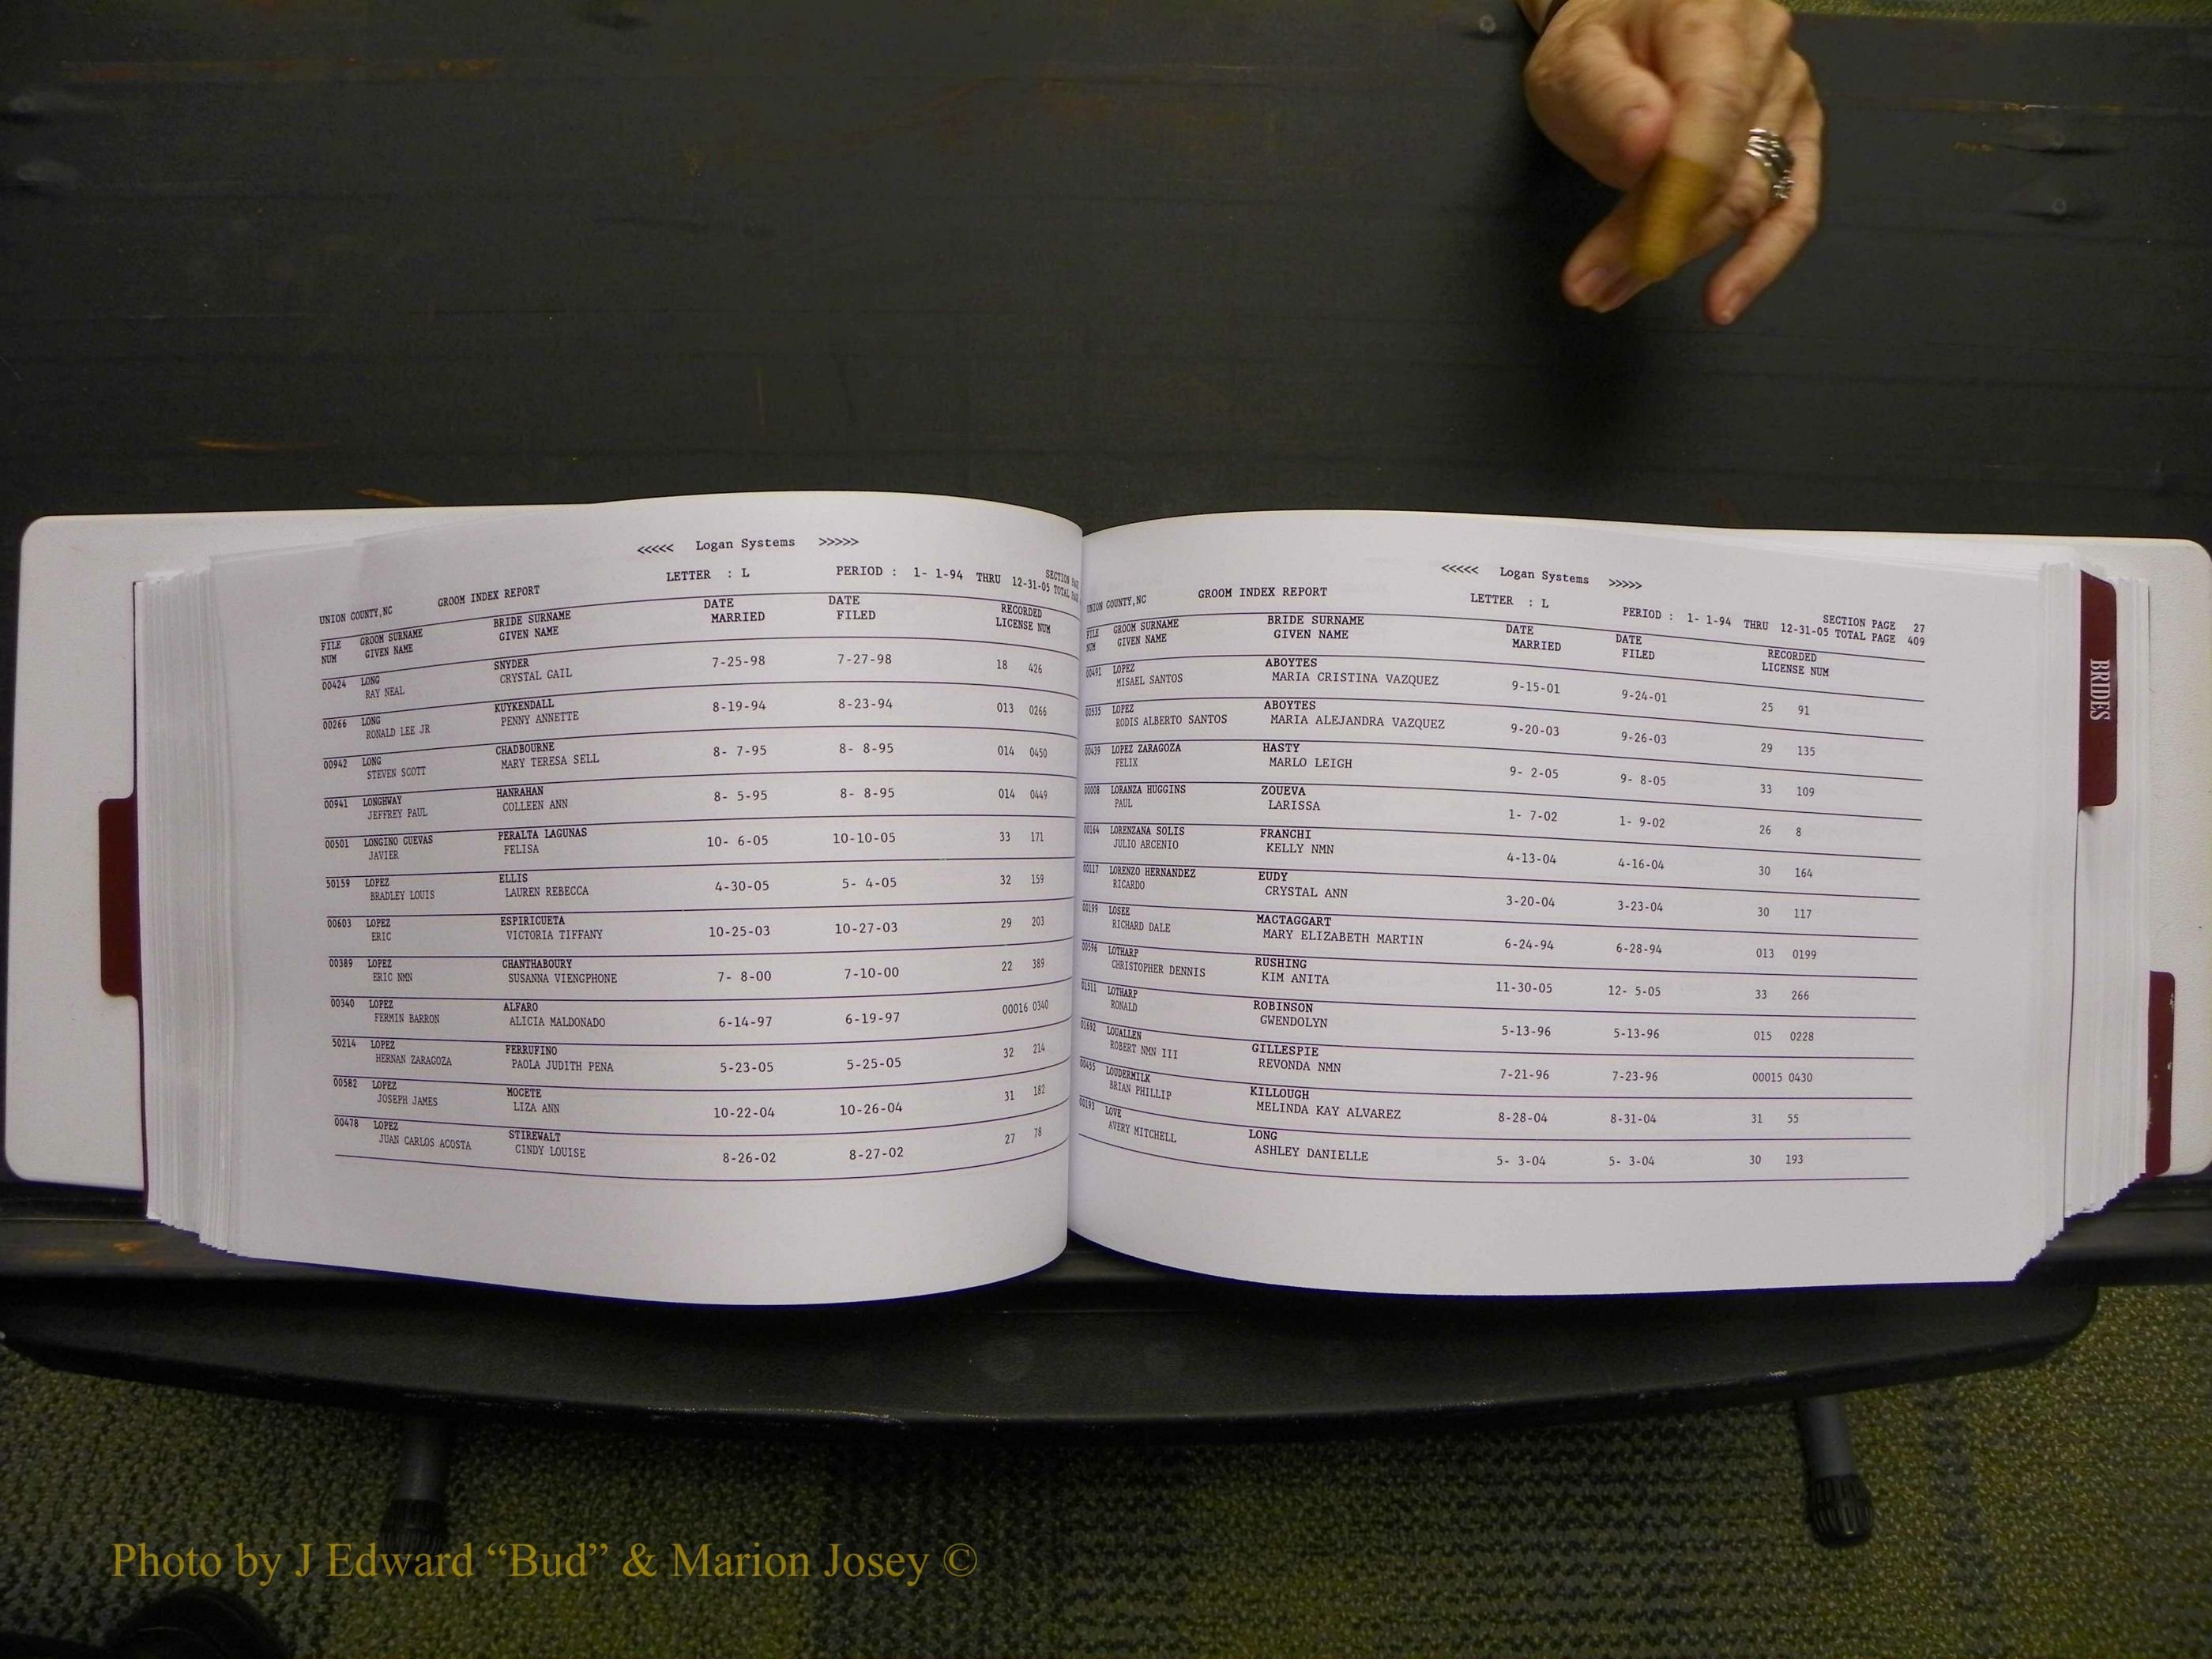 <<<<< Logan Systems >>>>>
UNION COUNTY,NC GROOM INDEX REPORT LETTER : L PERIOD : 1- 1-94 THRU 12-31-05 TOTAL
SECTION
FILE GROOM SURNAME BRIDE SURNAME DATE DATE RECORDED
NUM GIVEN NAME GIVEN NAME MARRIED FILED LICENSE NUM
00424 LONG SNYDER 7-25-98 7-27-98 18 426
RAY NEAL CRYSTAL GAIL
00266 LONG KUYKENDALL 8-19-94 8-23-94 013 0266
RONALD LEE JR PENNY ANNETTE
00942 LONG CHADBOURNE 8- 7-95 8- 8-95 014 0450
STEVEN SCOTT MARY TERESA SELL
00941 LONGHWAY HANRAHAN 8- 5-95 8- 8-95 014 0449
JEFFREY PAUL COLLEEN ANN
00501 LONGINO CUEVAS PERALTA LAGUNAS 10- 6-05 10-10-05 33 171
JAVIER FELISA
50159 LOPEZ ELLIS 4-30-05 5- 4-05 32 159
BRADLEY LOUIS LAUREN REBECCA
00603 LOPEZ ESPIRICUETA 10-25-03 10-27-03 29 203
ERIC VICTORIA TIFFANY
00389 LOPEZ CHANTHABOURY 7- 8-00 7-10-00 22 389
ERIC NMN SUSANNA VIENGPHONE
00340 LOPEZ ALFARO 6-14-97 6-19-97 00016 0340
FERMIN BARRON ALICIA MALDONADO
50214 LOPEZ FERRUFINO 5-23-05 5-25-05 32 214
HERNAN ZARAGOZA PAOLA JUDITH PENA
00582 LOPEZ MOCETE 10-22-04 10-26-04 31 182
JOSEPH JAMES LIZA ANN
00478 LOPEZ STIREWALT 8-26-02 8-27-02 27 78
JUAN CARLOS ACOSTA CINDY LOUISE
<<<<< Logan Systems >>>>>
UNION COUNTY,NC GROOM INDEX REPORT LETTER : L PERIOD : 1- 1-94 THRU 12-31-05 TOTAL PAGE 409
SECTION PAGE 27
FILE GROOM SURNAME BRIDE SURNAME DATE DATE RECORDED
NUM GIVEN NAME GIVEN NAME MARRIED FILED LICENSE NUM
00491 LOPEZ ABOYTES 9-15-01 9-24-01 25 91
MISAEL SANTOS MARIA CRISTINA VAZQUEZ
00535 LOPEZ ABOYTES 9-20-03 9-26-03 29 135
RODIS ALBERTO SANTOS MARIA ALEJANDRA VAZQUEZ
00439 LOPEZ ZARAGOZA HASTY 9- 2-05 9- 8-05 33 109
FELIX MARLO LEIGH
00008 LORANZA HUGGINS ZOUEVA 1- 7-02 1- 9-02 26 8
PAUL LARISSA
00164 LORENZANA SOLIS FRANCHI 4-13-04 4-16-04 30 164
JULIO ARCENIO KELLY NMN
00117 LORENZO HERNANDEZ EUDY 3-20-04 3-23-04 30 117
RICARDO CRYSTAL ANN
00199 LOSEE MACTAGGART 6-24-94 6-28-94 013 0199
RICHARD DALE MARY ELIZABETH MARTIN
00596 LOTHARP RUSHING 11-30-05 12- 5-05 33 266
CHRISTOPHER DENNIS KIM ANITA
01511 LOTHARP ROBINSON 5-13-96 5-13-96 015 0228
RONALD GWENDOLYN
01692 LOUALLEN GILLESPIE 7-21-96 7-23-96 00015 0430
ROBERT NMN III REVONDA NMN
00455 LOUDERMILK KILLOUGH 8-28-04 8-31-04 31 55
BRIAN PHILLIP MELINDA KAY ALVAREZ
00193 LOVE LONG 5- 3-04 5- 3-04 30 193
AVERY MITCHELL ASHLEY DANIELLE
BRIDES
Photo by J Edward “Bud” & Marion Josey ©